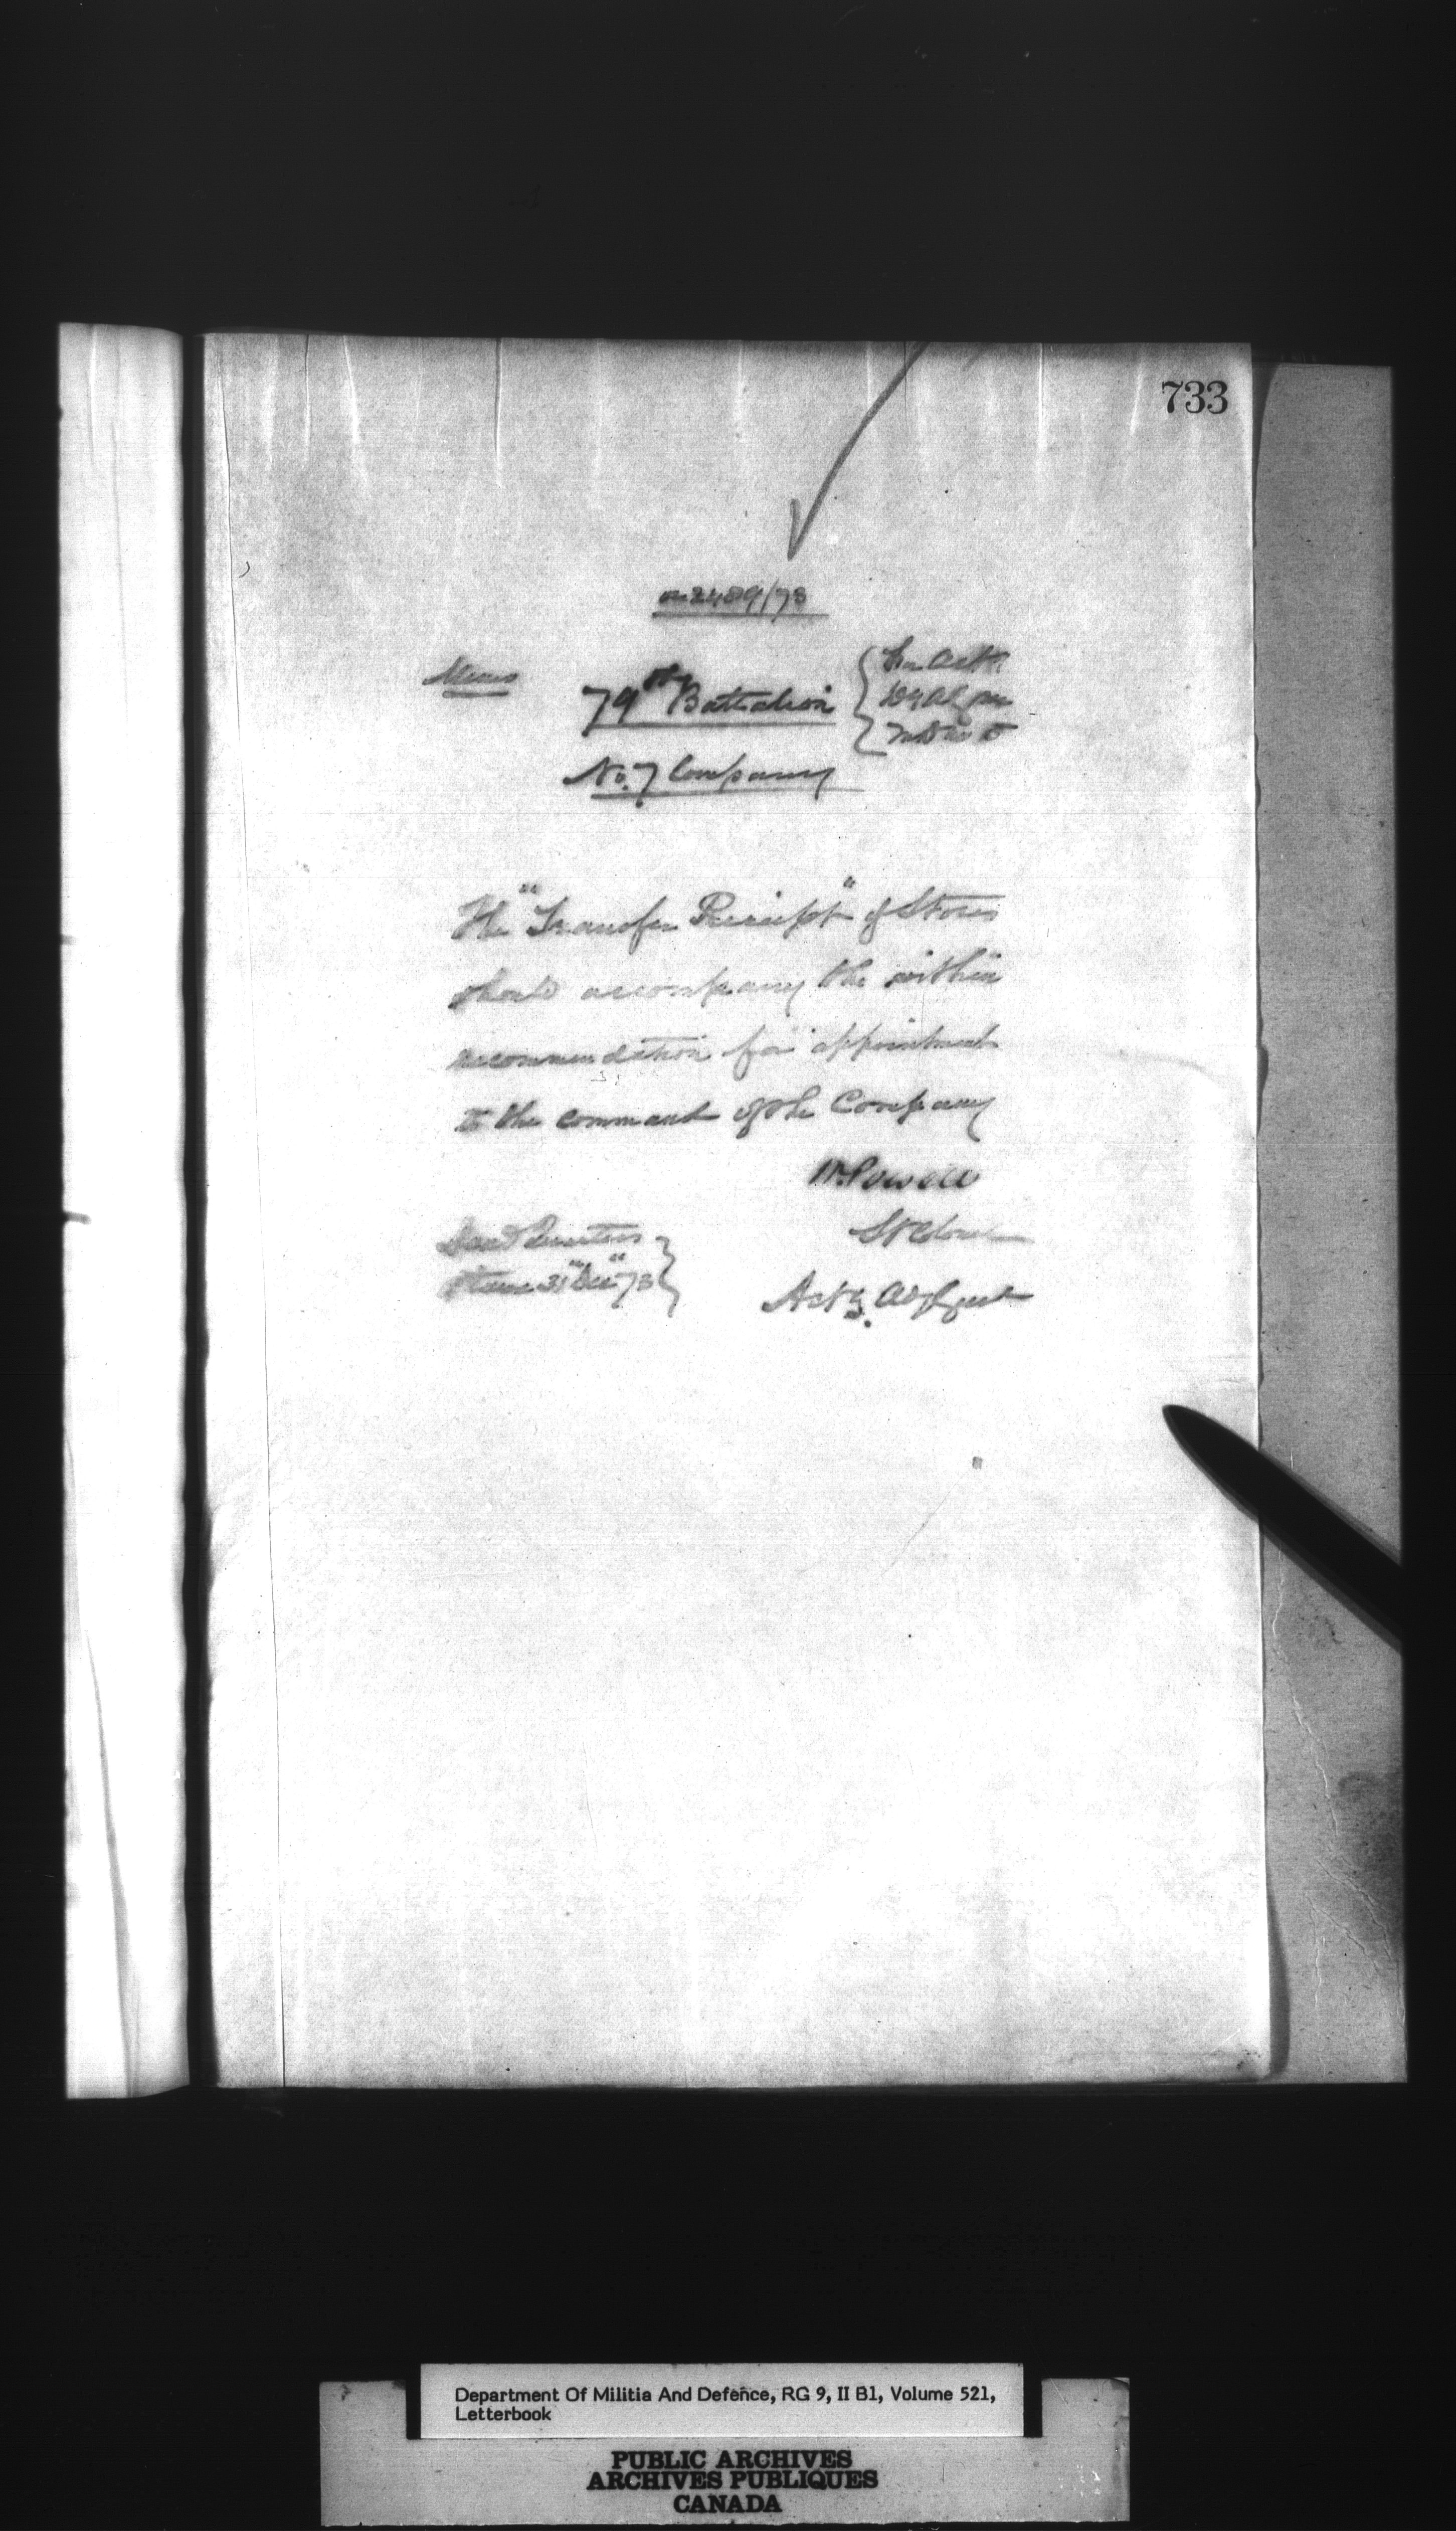 733
on 2489/73
Memo
79th Battalion
No. 7 Company
The "Transfer Receipt" of Stores
should accompany the within
recommendation for appointment
to the command of the Company
W. Powell
Lt Colonel
Actg. Adj Genl
Head Quarters
Ottawa 31 "Dec" 73
Department Of Militia And Defence, RG 9, II B1, Volume 521,
Letterbook
PUBLIC ARCHIVES
ARCHIVES PUBLIQUES
CANADA